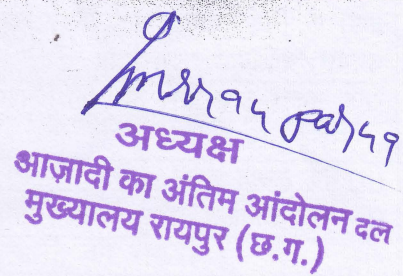 अध्यक्ष
आज़ादी का अंतिम आंदोलन दल
मुख्यालय रायपुर (छ.ग.)